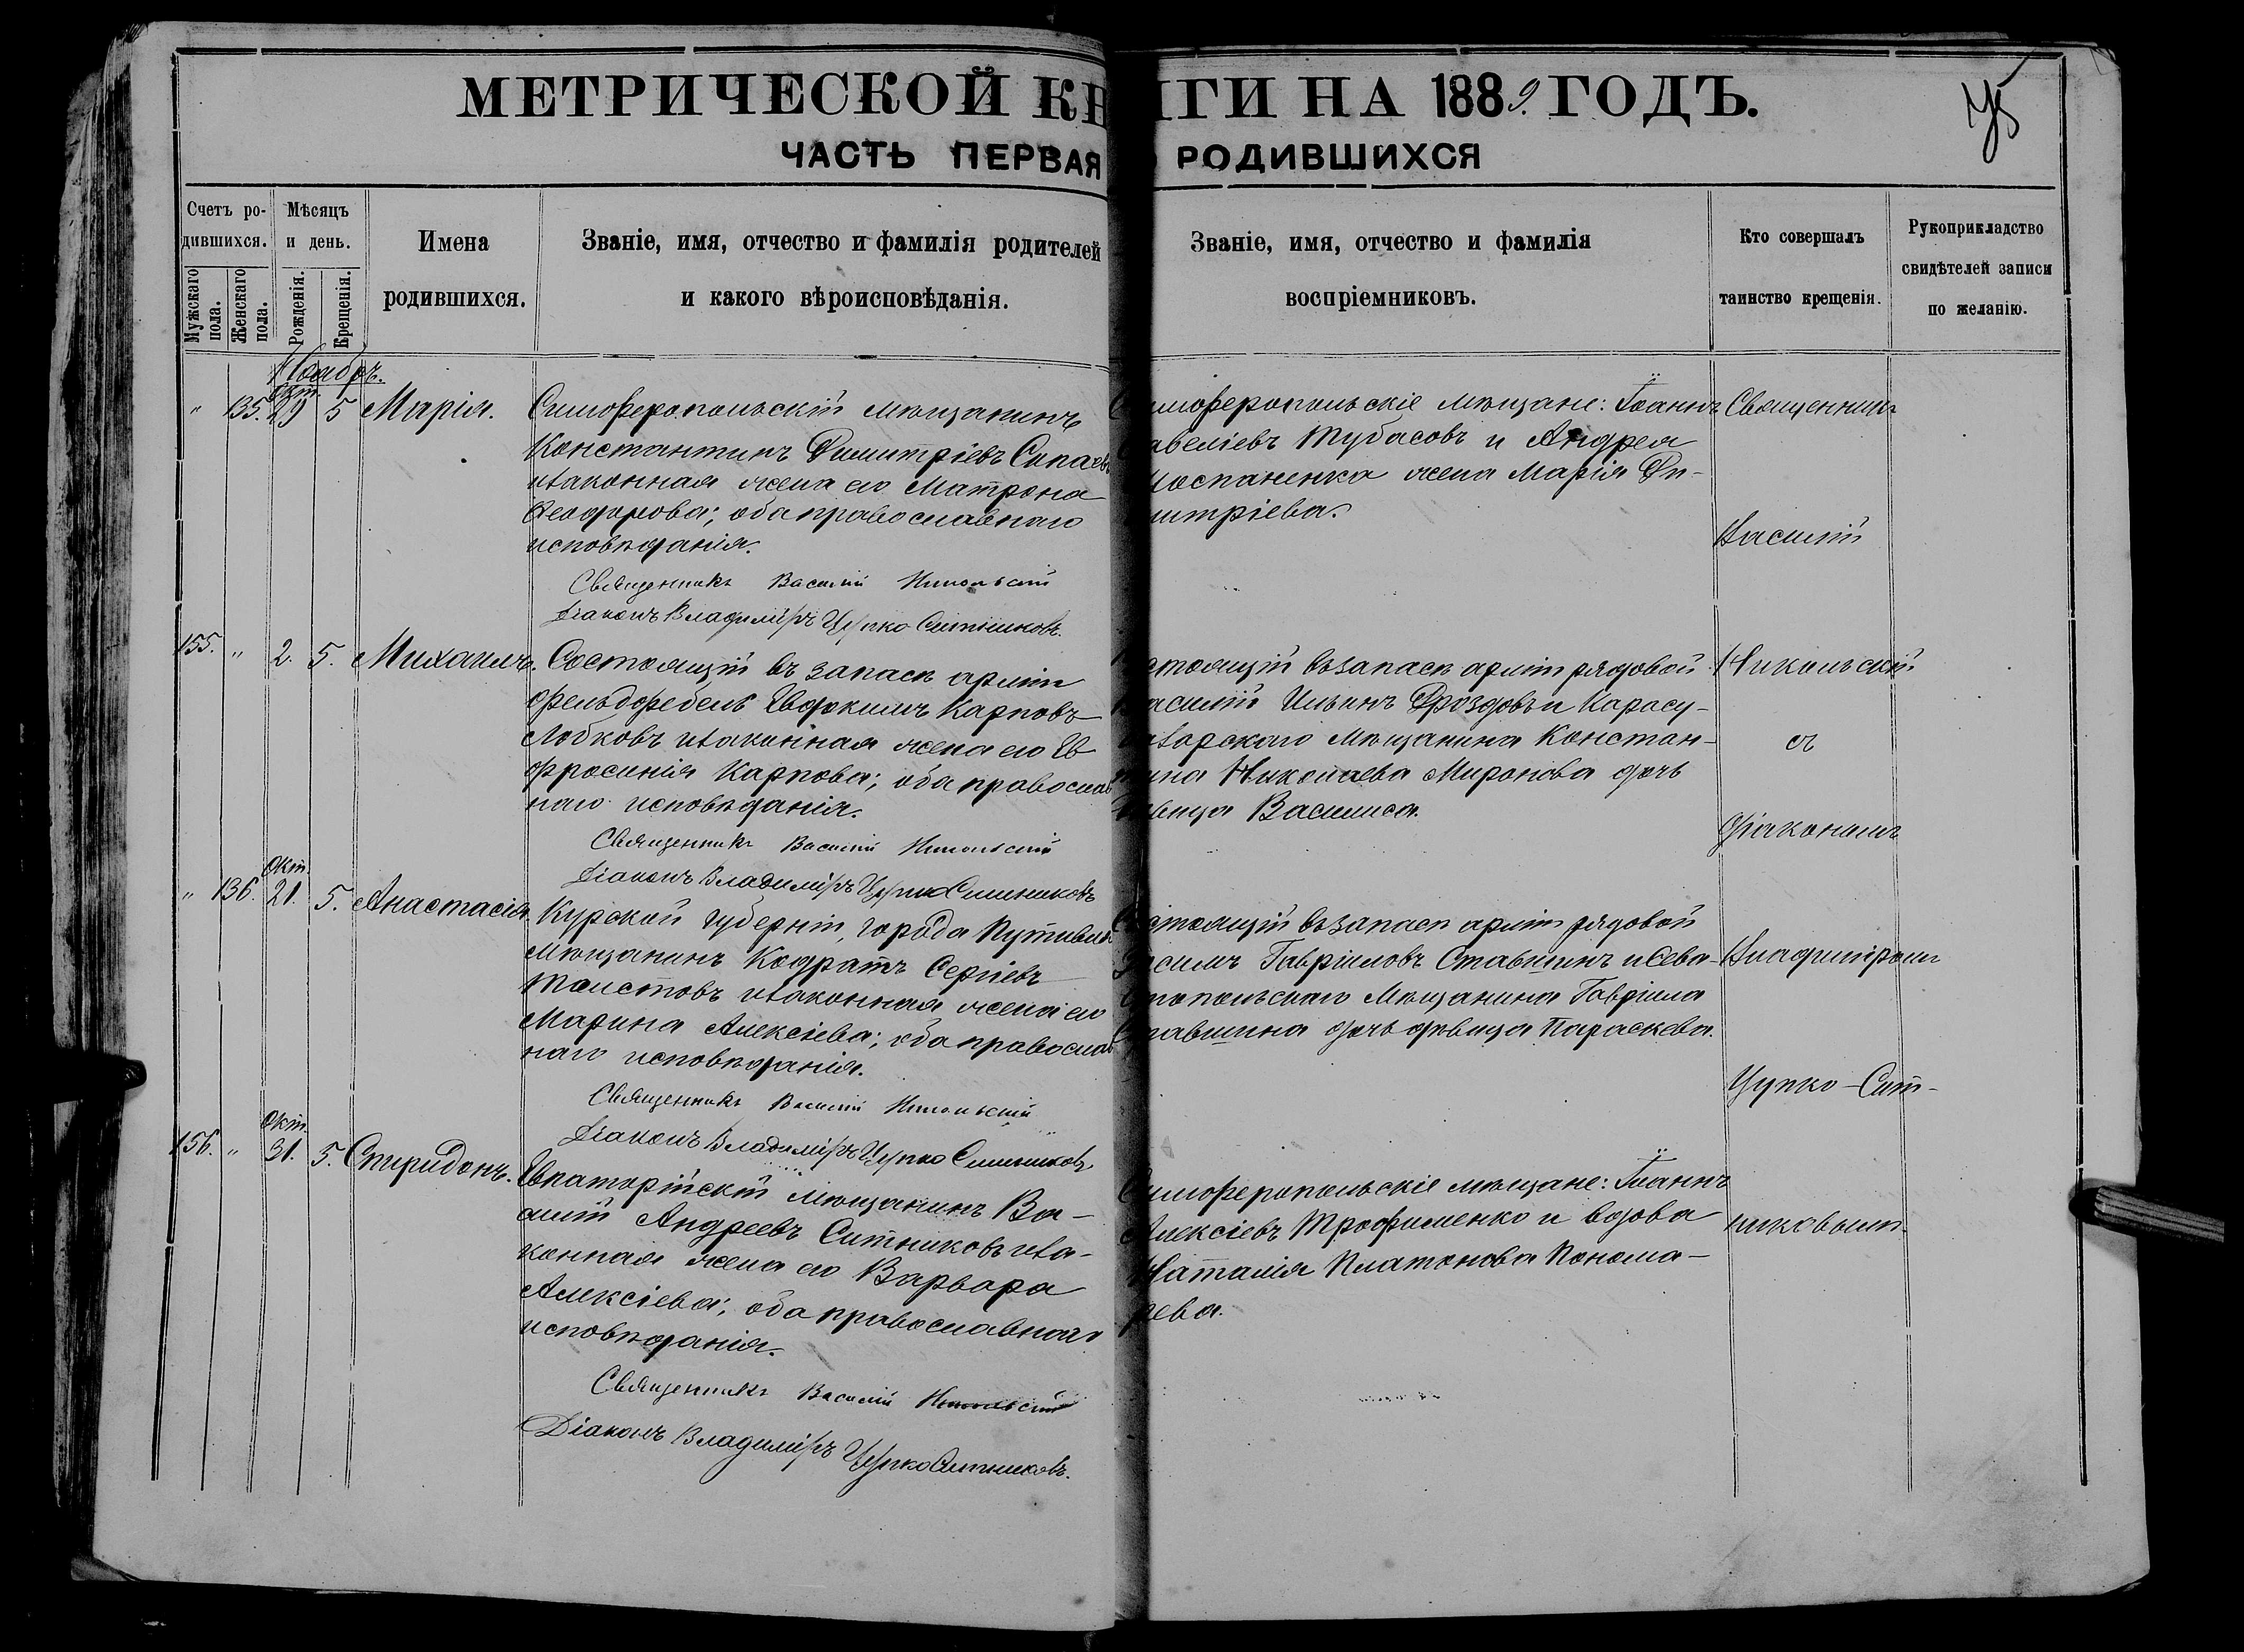 МЕТРИЧЕСКОЙ КНИГИ НА 1889 ГОДЪ.
ЧАСТЬ ПЕРВАЯ РОДИВШИХСЯ
Счетъ родившихся.
Мужскаго пола.
Женскаго пола.
Мѣсяцъ и день.
Рожденія.
Крещенія.
Имена
родившихся.
Званіе, имя, отчество и фамилія родителей
и какого вѣроисповѣданія.
Званіе, имя, отчество и фамилія
воспріемниковъ.
Кто совершалъ
таинство крещенія.
Рукоприкладство
свидѣтелей записи
по желанію.
Ноябрь.
" 135. Окт. 29 5 Марія.
Симферопольскій мѣщанинъ
Константинъ Димитріевъ
и законная жена его Матрона
Ѳеодорова; оба православнаго
исповѣданія.
Священникъ Василій Никольскій
Діаконъ Владиміръ Цупко Ситниковъ.
Симферопольскіе мѣщане: Іоаннъ
Савеліевъ Тубасовъ и Андрея
жена Марія Ди-
митріева.
155. " 2. 5. Михаилъ.
Состоящій въ запасѣ арміи
фельдфебель Евдокимъ Карповъ
Лобковъ и законная жена его Ев
фросинія Карпова; оба православ
наго исповѣданія.
Священникъ Василій Никольскій
Діаконъ Владиміръ Цупко Ситниковъ
Состоящій въ запасѣ арміи рядовой
Василій Ильинъ Дроздовъ и Карасу-
базарскаго мѣщанина Констан-
тина Николаева Миронова дочь
дѣвица Василиса.
" 136. Окт. 21. 5. Анастасія.
Курской губерніи, города Путивля
мѣщанинъ Кодратъ Сергіевъ
Толстовъ и законная жена его
Марина Алексіева; оба православ
наго исповѣданія.
Священникъ Василій Никольскій
Діаконъ Владиміръ Цупко Ситниковъ
Состоящій въ запасѣ арміи рядовой
Гавріиловъ Ставшинъ и Сева-
стопольскаго мѣщанина Гавріила
Ставшина дочь дѣвица Параскева.
156. " Окт. 31. 5. Спиридонъ.
Евпаторійскій мѣщанинъ Ва-
силій Андреевъ Ситниковъ и за-
конная жена его Варвара
Алексіева; оба православнаго
исповѣданія.
Священникъ Василій Никольскій
Діаконъ Владиміръ Цупко Ситниковъ.
Симферопольскіе мѣщане: Іоаннъ
Алексіевъ Трофименко и вдова
Наталія Платонова Понома-
рева.
Священникъ
Василій
Никольскій
съ
діакономъ
Владиміромъ
Цупко-Сит-
никовымъ.